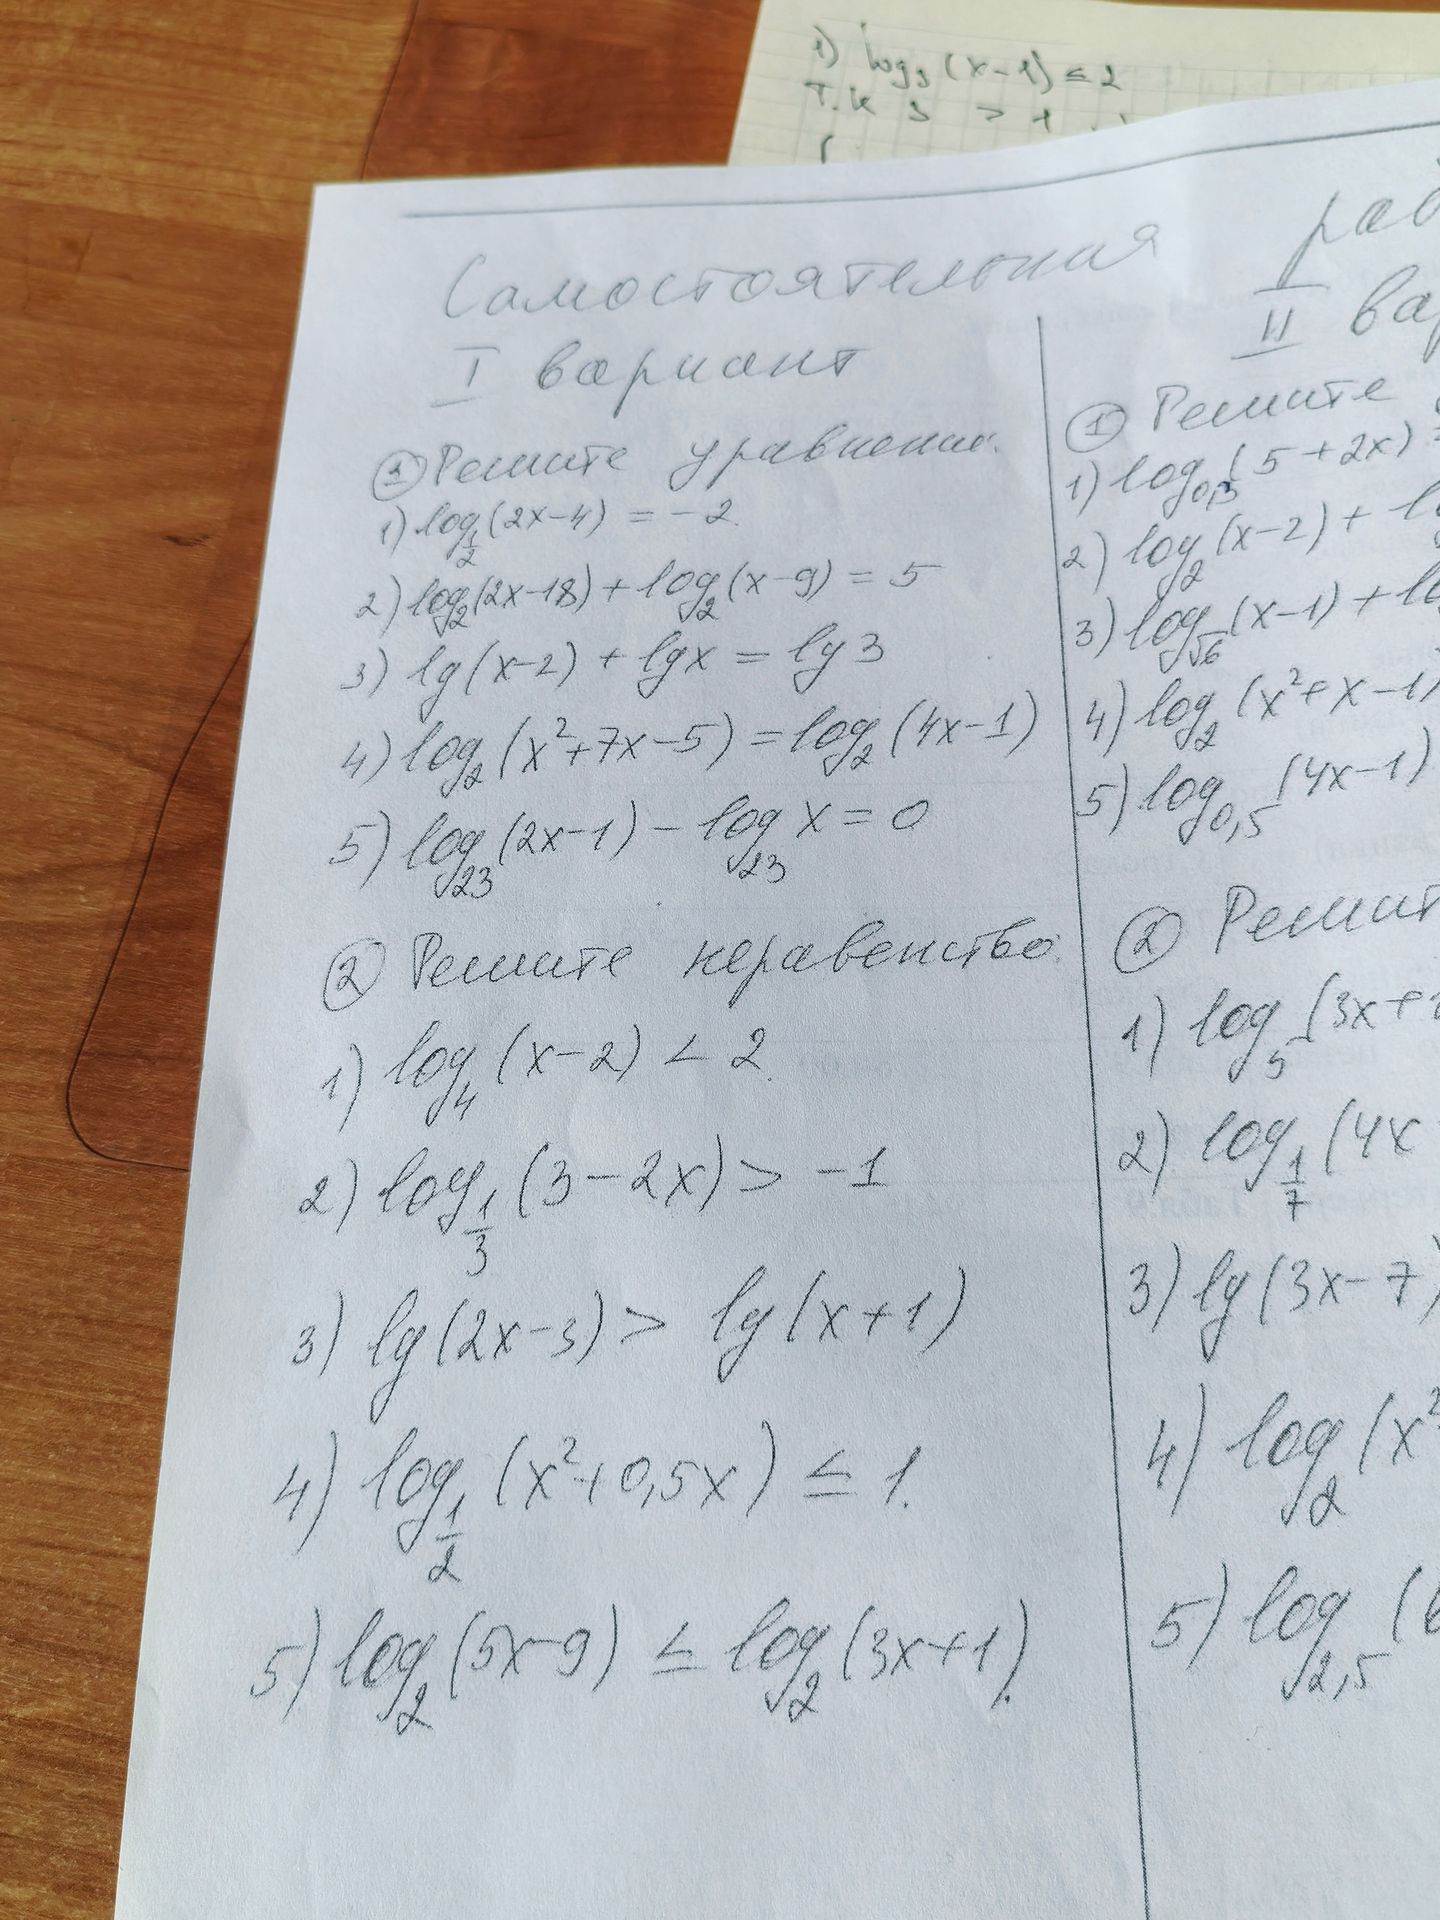 1) log₃(x-1) ≤ 2
т.к 3 > 1
Самостоятельная раб
I вариант
① Решите уравнение.
1) log_{1/2}(2x-4) = -2.
2) log₂(2x-18) + log₂(x-9) = 5
3) lg(x-2) + lgx = lg3
4) log₂(x²+7x-5) = log₂(4x-1)
5) log₂₃(2x-1) - log₂₃x = 0
② Решите неравенство:
1) log₄(x-2) < 2.
2) log_{1/3}(3-2x) > -1
3) lg(2x-3) > lg(x+1)
4) log_{1/2}(x²+0,5x) ≤ 1.
5) log₂(5x-9) ≤ log₂(3x+1).
II вар
① Решите
1) log_{0,3}(5+2x)
2) log₂(x-2) +
3) log_{√6}(x-1) +
4) log₂(x²+x-1)
5) log_{0,5}(4x-1)
② Решит
1) log₅(3x+
2) log_{1/7}(4x
3) lg(3x-7)
4) log₂(x²
5) log_{2,5}(